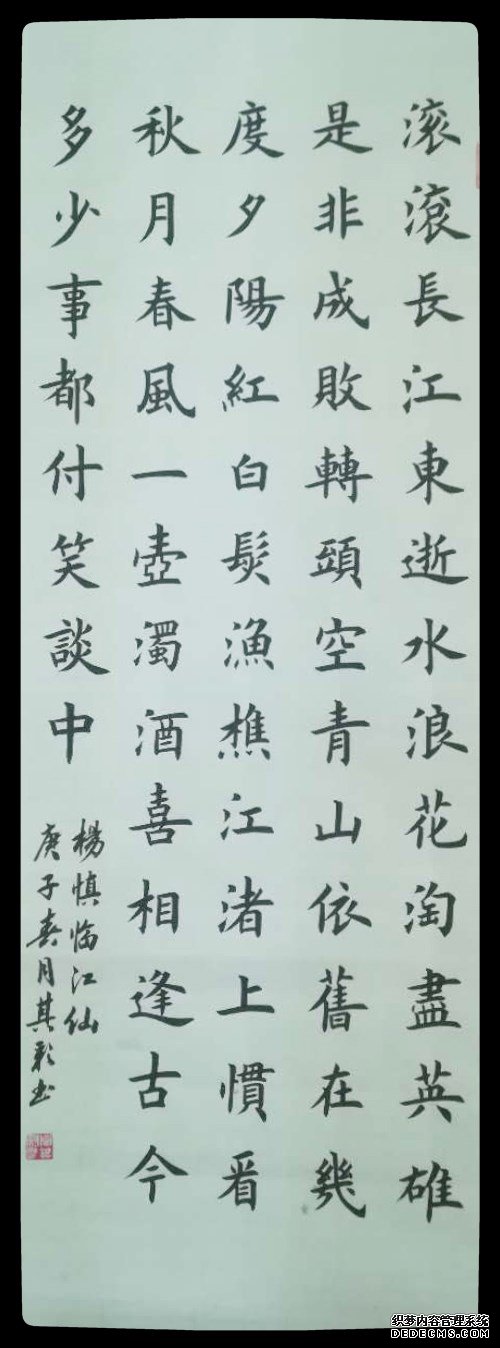 滚滾長江東逝水浪花淘盡英雄
是非成敗轉頭空青山依舊在幾
度夕陽紅白髮漁樵江渚上慣看
秋月春風一壺濁酒喜相逢古今
多少事都付笑談中
楊慎臨江仙
庚子春月其彩书
织梦内容管理系统
DEDECMS.COM